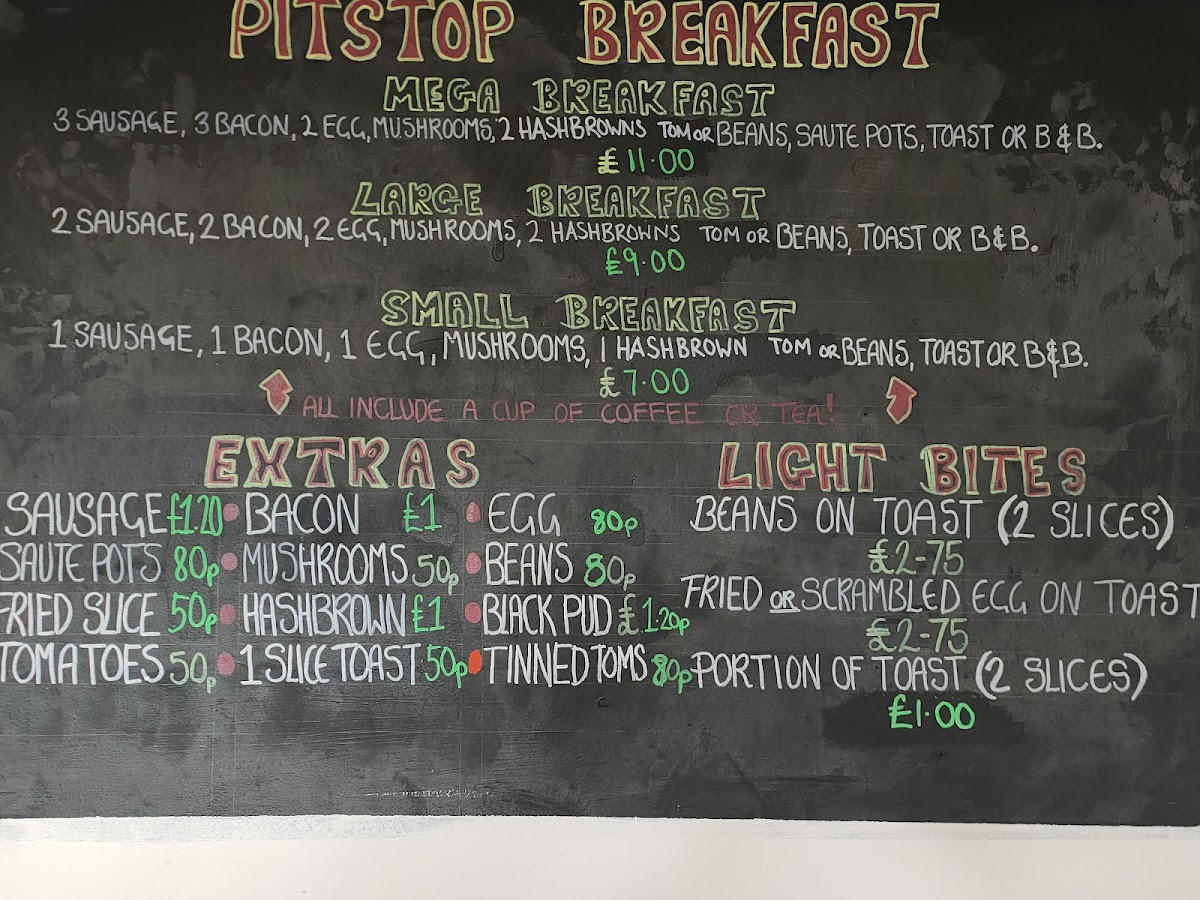 PITSTOP BREAKFAST
MEGA BREAKFAST
3 SAUSAGE, 3 BACON, 2 EGG, MUSHROOMS, 2 HASHBROWNS TOM OR BEANS, SAUTE POTS, TOAST OR B & B.
£11.00
LARGE BREAKFAST
2 SAUSAGE, 2 BACON, 2 EGG, MUSHROOMS, 2 HASHBROWNS TOM OR BEANS, TOAST OR B & B.
£9.00
SMALL BREAKFAST
1 SAUSAGE, 1 BACON, 1 EGG, MUSHROOMS, 1 HASHBROWN TOM OR BEANS, TOAST OR B & B.
£7.00
ALL INCLUDE A CUP OF COFFEE OR TEA!
EXTRAS
SAUSAGE £1.20 • BACON £1 • EGG 80p
SAUTE POTS 80p • MUSHROOMS 50p • BEANS 80p
FRIED SLICE 50p • HASHBROWN £1 • BLACK PUD £1.20p
TOMATOES 50p • 1 SLICE TOAST 50p • TINNED TOMS 80p
LIGHT BITES
BEANS ON TOAST (2 SLICES)
£2-75
FRIED OR SCRAMBLED EGG ON TOAST
£2-75
PORTION OF TOAST (2 SLICES)
£1.00